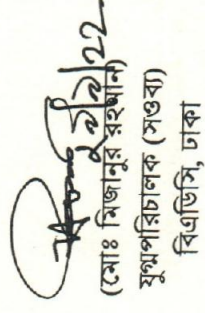 (মোঃ মিজানুর রহমান)
যুগ্মপরিচালক (সওব্য)
বিএডিসি, ঢাকা